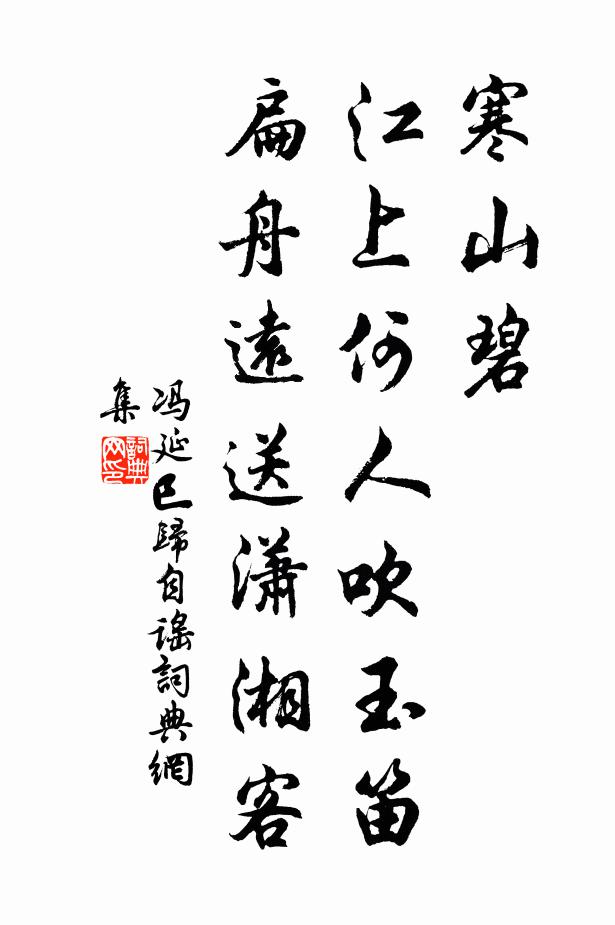 寒山碧
江上何人吹玉笛
扁舟遠送瀟湘客
冯延巳歸自谣詞典網
集
詞典
网印